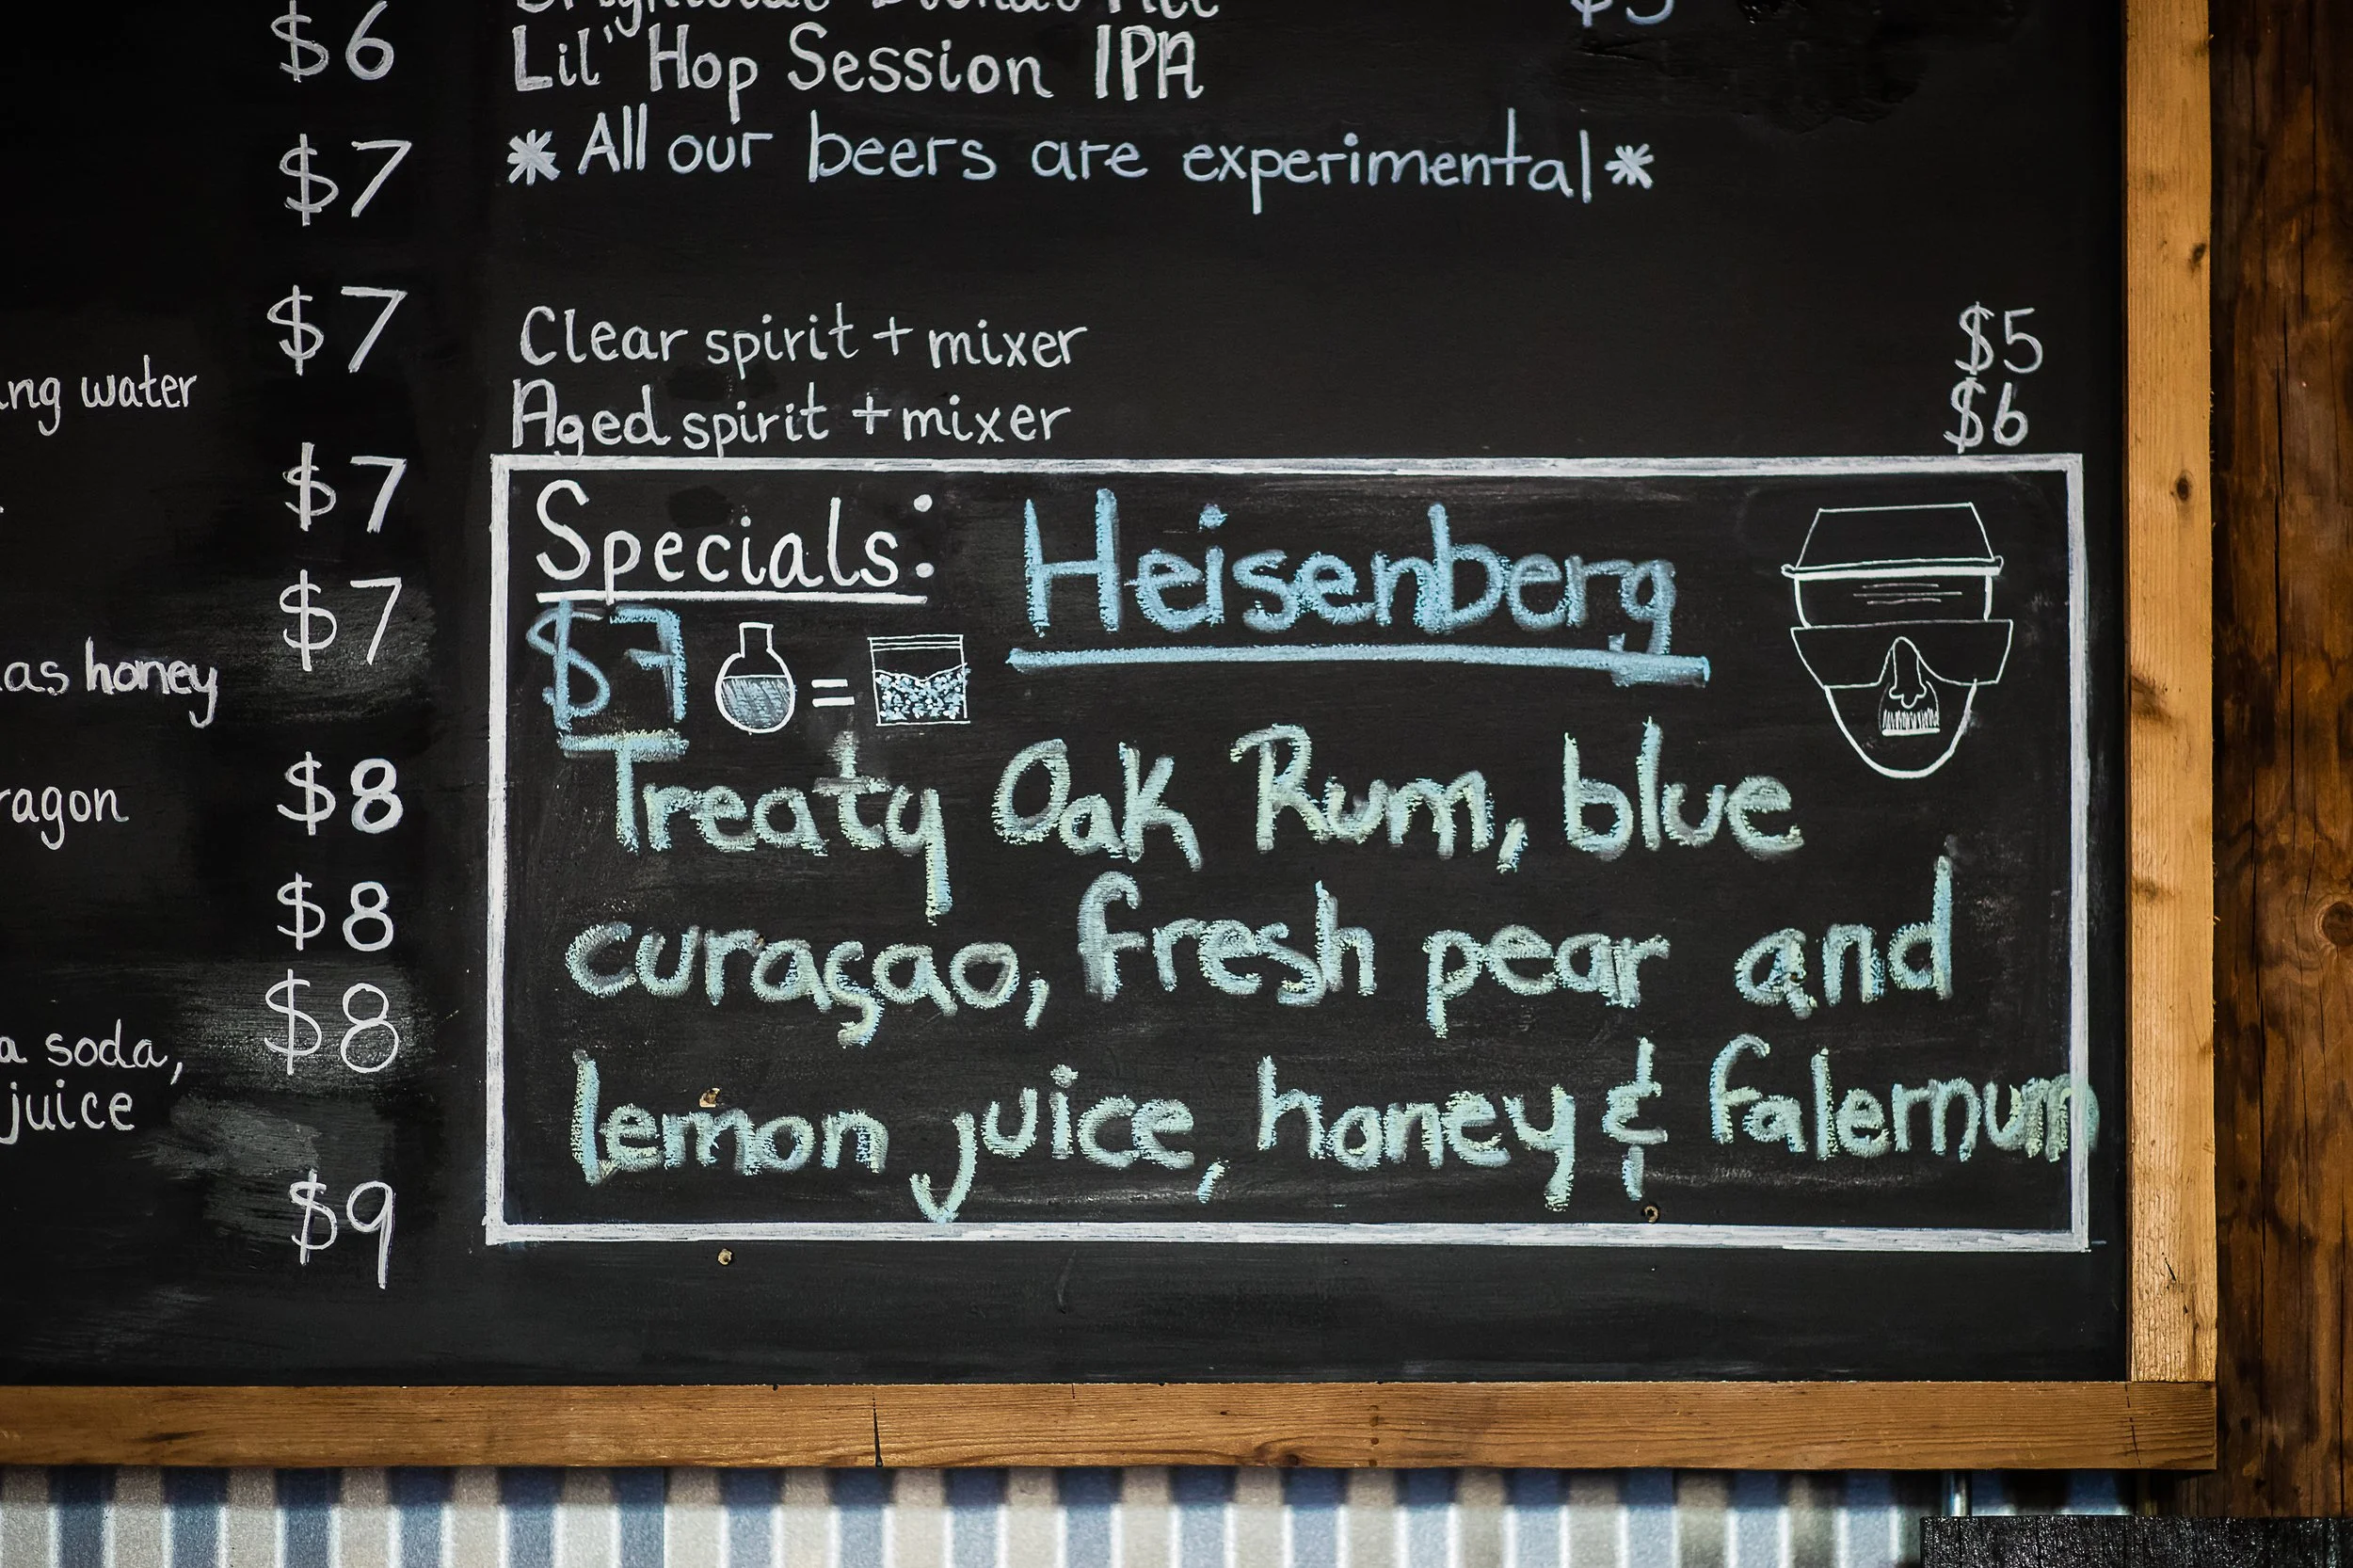 $6
$7
$7
ng water
$7
$7
as honey
$8
ragon
$8
$8
a soda,
juice
$9
Lil' Hop Session IPA
* All our beers are experimental *
Clear spirit + mixer $5
Aged spirit + mixer $6
Specials: Heisenberg
$7 =
Treaty Oak Rum, blue
curaçao, fresh pear and
lemon juice, honey & falernum